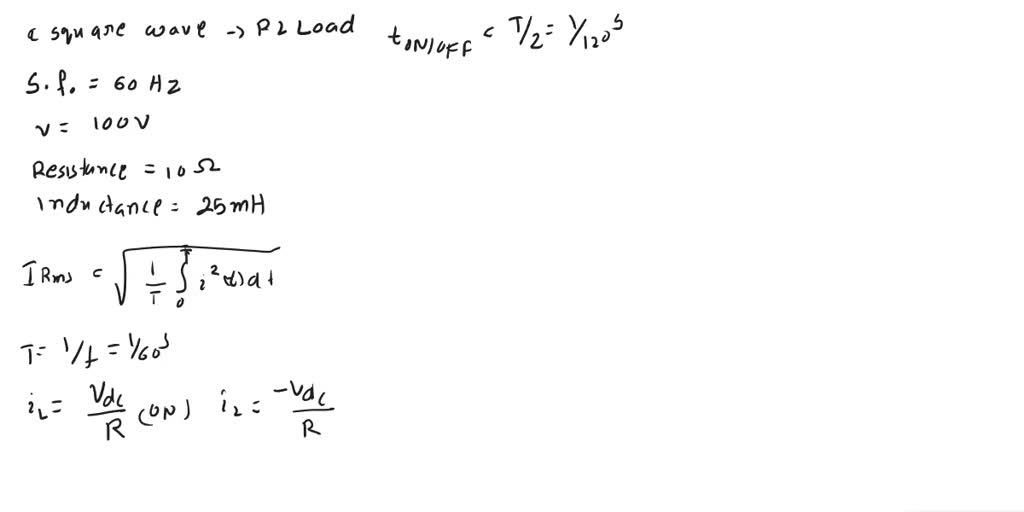 a square wave → RL Load t_ON/OFF = T/2 = 1/120 s
S.f. = 60 Hz
v = 100V
Resistance = 10 Ω
Inductance = 25mH
I Rms = √(1/T ∫₀ᵀ i²(t)dt)
T = 1/f = 1/60 s
i_L = Vdc/R (ON) i_L = -Vdc/R